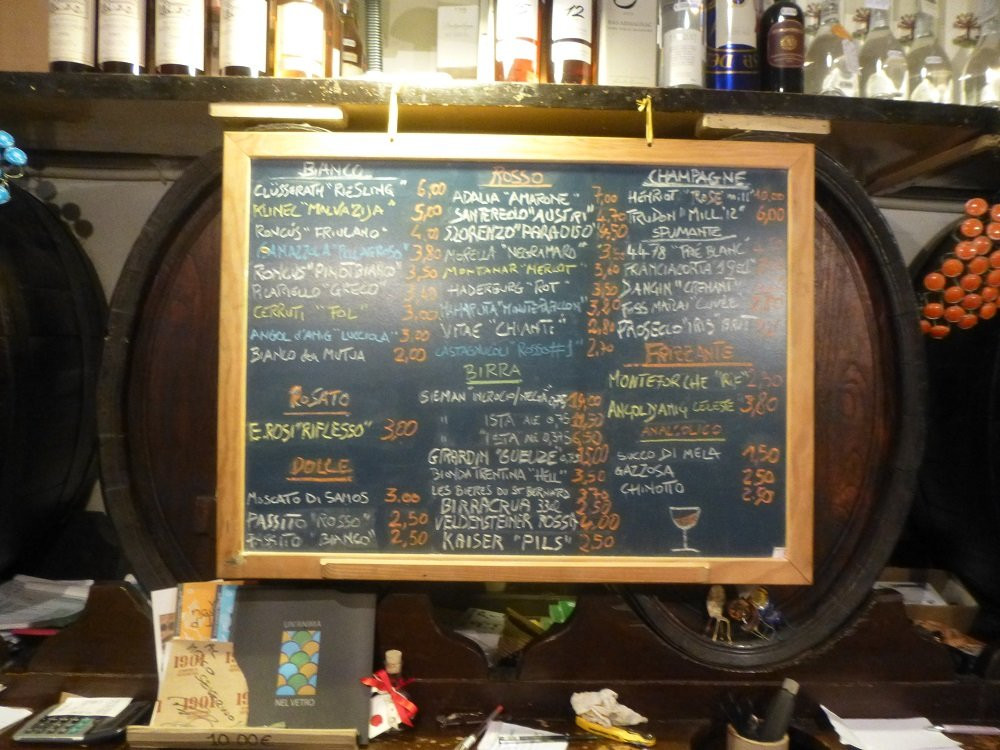 BIANCO
CLÜSSERATH "RIESLING" 6,00
KUNEL "MALVAZIJA" 5,00
RONCUS "FRIULANO" 4,00
3,80
RONCUS "PINOT BIANCO" 3,50
PICARIELLO "GRECO"
CERRUTI "FOL" 3,00
ANGOL D'AMIG "LUCCIOLA" 3,00
BIANCO della MUTUA 2,00
ROSATO
E.ROSI "RIFLESSO" 3,00
DOLCE
MOSCATO DI SAMOS 3,00
PASSITO "ROSSO" 2,50
PASSITO "BIANCO" 2,50
ROSSO
ADALIA "AMARONE" 7,00
SANTEREOLO "AUSTRI" 4,70
S.LORENZO "PARADISO" 4,50
MORELLA "NEGRAMARO"
MONTANAR "MERLOT"
HADERBURG "ROT"
3,20
VITAE "CHIANTI" 2,80
CASTAGNUCOLI "ROSSO#1" 2,70
BIRRA
SIEMAN 0,75
" ISTA AE 0,75
" ISTA AE 0,375
GIRARDIN "GUEUZE"
BIONDA TRENTINA "HELL" 3,50
LES BIERES DU ST BERNARD
BIRRACRUA 33CL 2,50
VELDENSTEINER ROSSA 4,00
KAISER "PILS" 2,50
CHAMPAGNE
HENRIOT "ROSÈ" 10,00
TRUDON "MILL.'12" 6,00
SPUMANTE
44-78 "PRE BLANC"
FRANCIACORTA
DANGIN "CREMANT"
PROSECCO "IRIS" BRUT
FRIZZANTE
MONTEFORCHE "RIF" 2,50
ANGOL D'AMIG CELESTE 3,80
ANALCOLICO
SUCCO DI MELA 1,50
GAZZOSA 2,50
CHINOTTO 2,50
UN'ANIMA
NEL VETRO
1901
10,00€